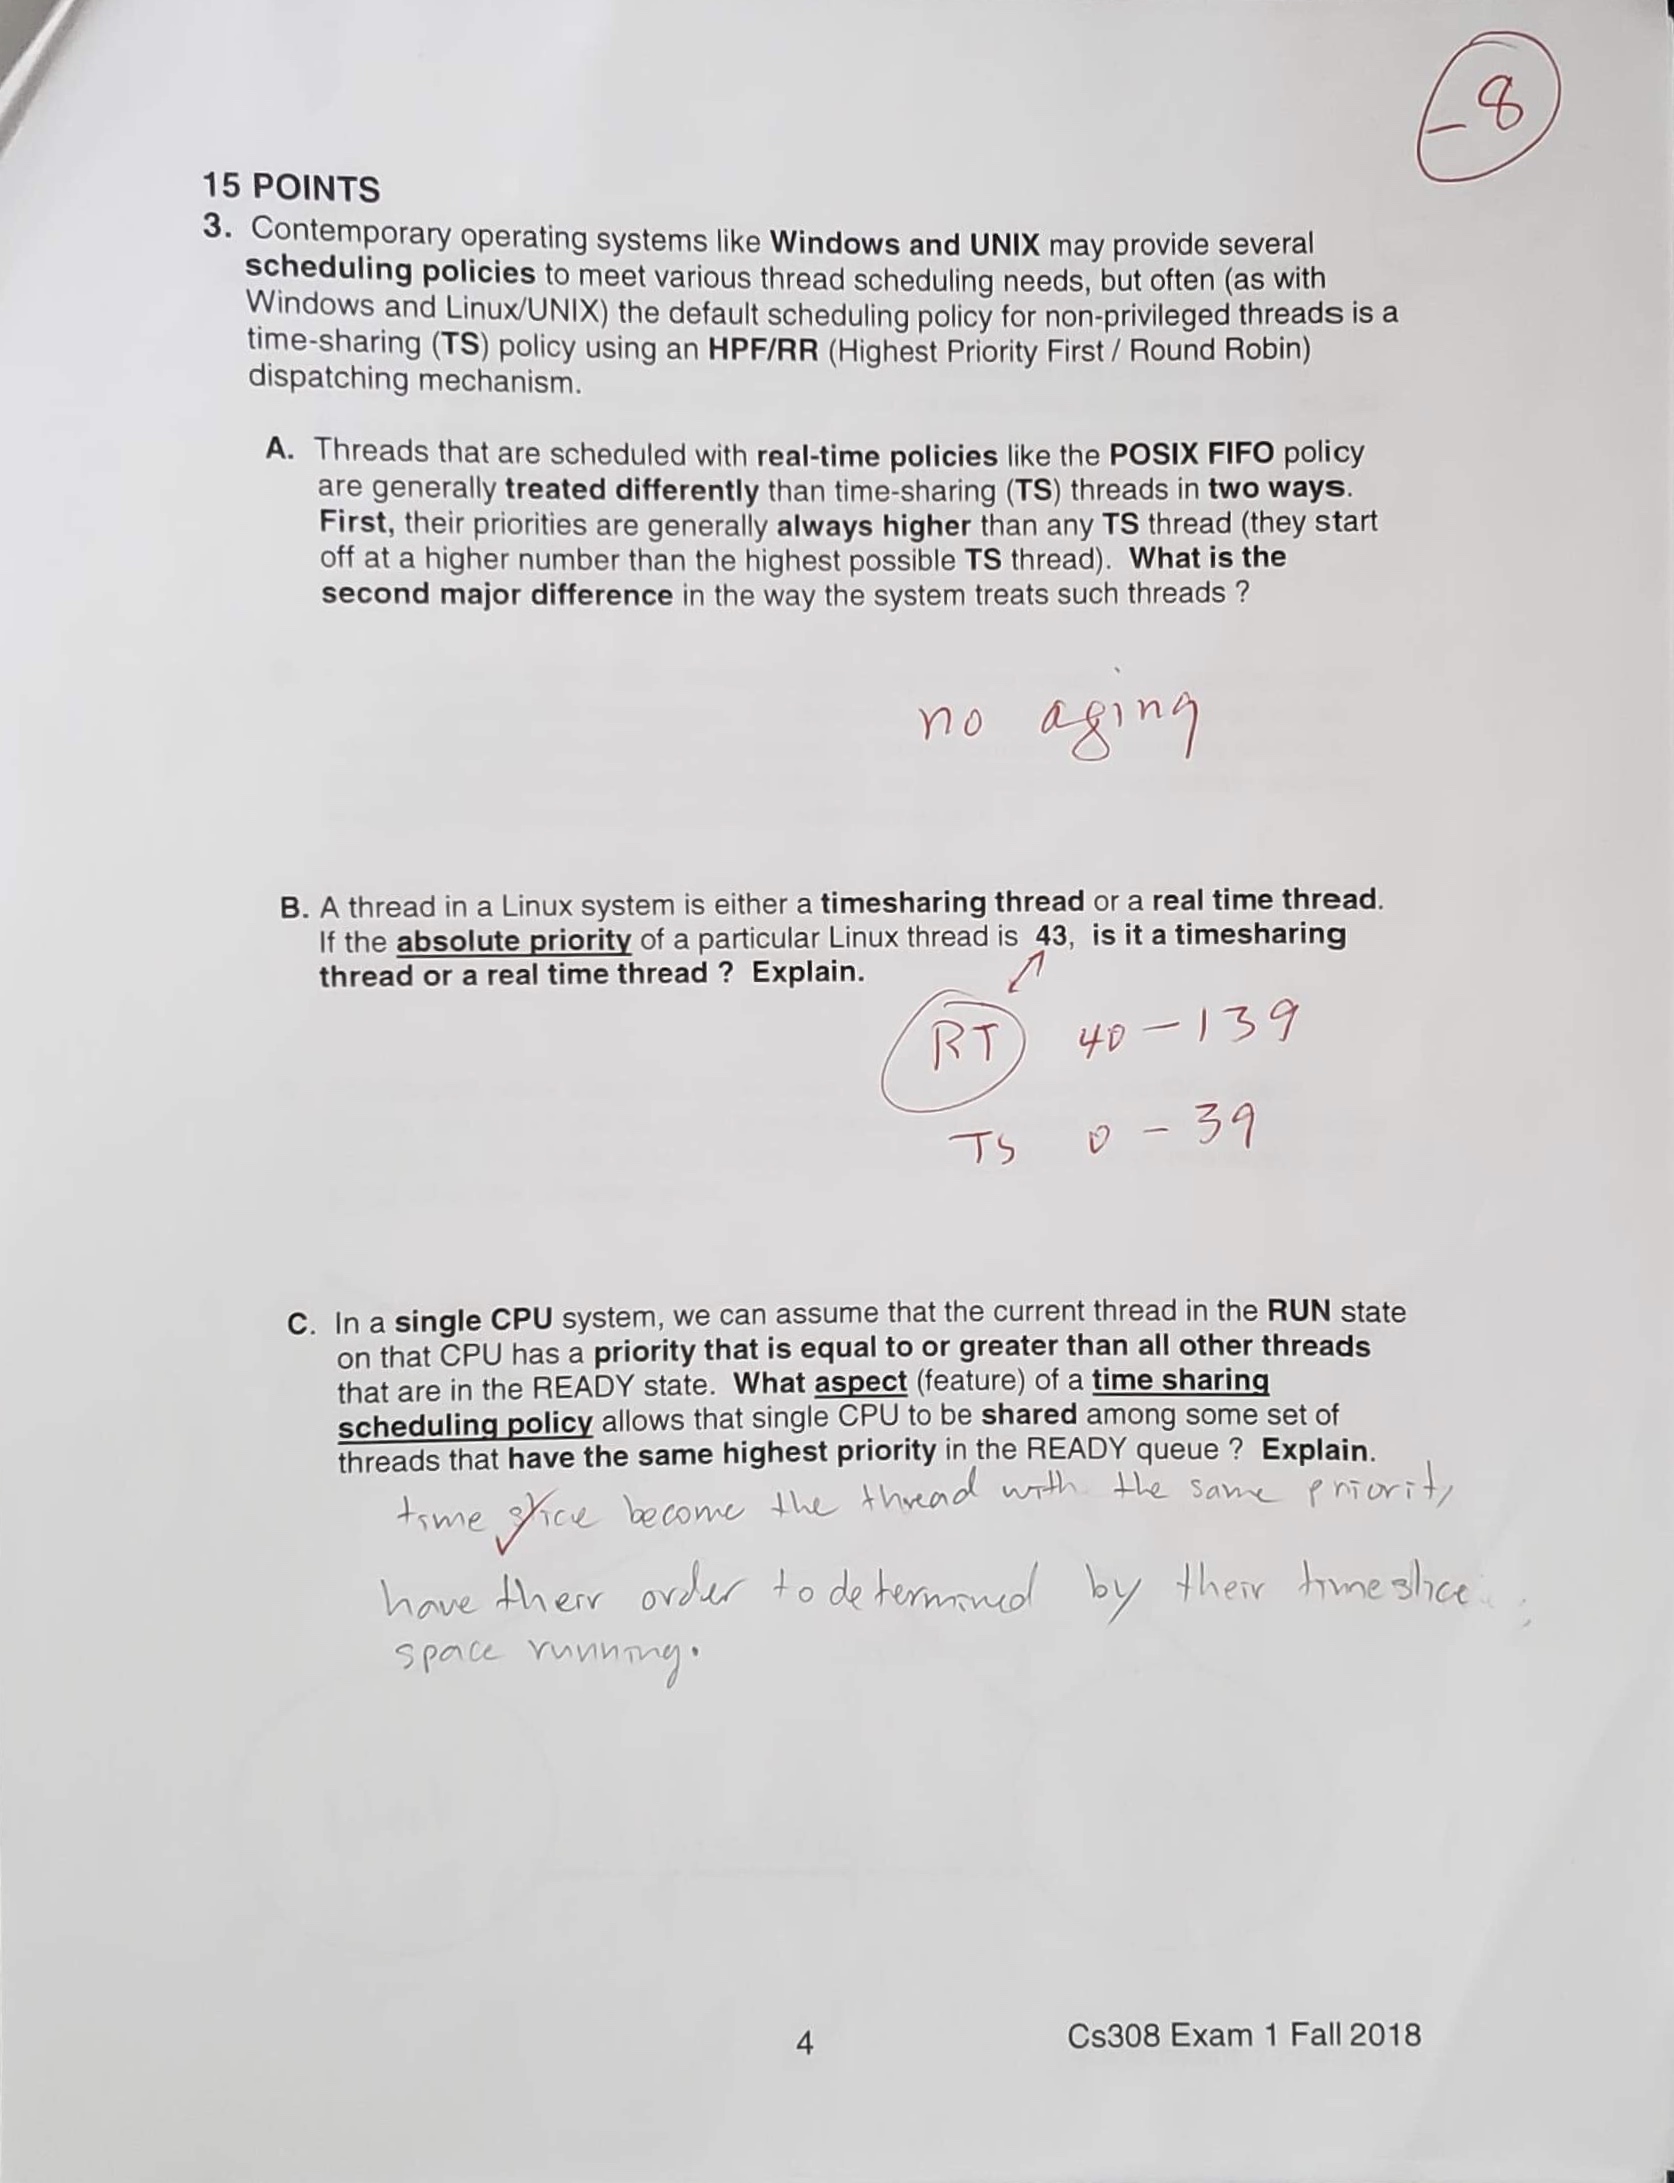 -8
15 POINTS
3. Contemporary operating systems like Windows and UNIX may provide several
scheduling policies to meet various thread scheduling needs, but often (as with
Windows and Linux/UNIX) the default scheduling policy for non-privileged threads is a
time-sharing (TS) policy using an HPF/RR (Highest Priority First / Round Robin)
dispatching mechanism.
A. Threads that are scheduled with real-time policies like the POSIX FIFO policy
are generally treated differently than time-sharing (TS) threads in two ways.
First, their priorities are generally always higher than any TS thread (they start
off at a higher number than the highest possible TS thread). What is the
second major difference in the way the system treats such threads ?
no aging
B. A thread in a Linux system is either a timesharing thread or a real time thread.
If the absolute priority of a particular Linux thread is 43, is it a timesharing
thread or a real time thread ? Explain.
RT 40 - 139
TS 0 - 39
C. In a single CPU system, we can assume that the current thread in the RUN state
on that CPU has a priority that is equal to or greater than all other threads
that are in the READY state. What aspect (feature) of a time sharing
scheduling policy allows that single CPU to be shared among some set of
threads that have the same highest priority in the READY queue ? Explain.
time slice become the thread with the same priority
have their order to determined by their timeslice
space running.
4 Cs308 Exam 1 Fall 2018